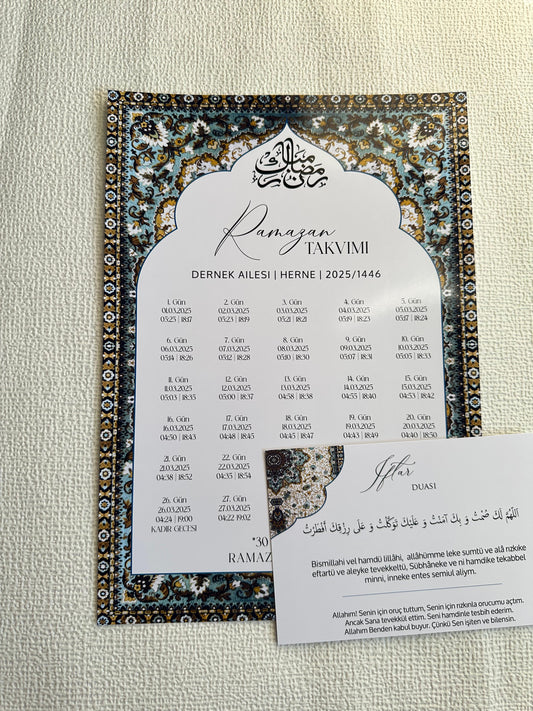 رمضان مبارك
Ramazan
TAKVIMI
DERNEK AILESI | HERNE | 2025/1446
1. Gün 2. Gün 3. Gün 4. Gün 5. Gün
01.03.2025 02.03.2025 03.03.2025 04.03.2025 05.03.2025
05:25 | 18:17 05:23 | 18:19 05:21 | 18:21 05:19 | 18:23 05:17 | 18:24
6. Gün 7. Gün 8. Gün 9. Gün 10. Gün
06.03.2025 07.03.2025 08.03.2025 09.03.2025 10.03.2025
05:14 | 18:26 05:12 | 18:28 05:10 | 18:30 05:07 | 18:31 05:05 | 18:33
11. Gün 12. Gün 13. Gün 14. Gün 15. Gün
11.03.2025 12.03.2025 13.03.2025 14.03.2025 15.03.2025
05:03 | 18:35 05:00 | 18:37 04:58 | 18:38 04:55 | 18:40 04:53 | 18:42
16. Gün 17. Gün 18. Gün 19. Gün 20. Gün
16.03.2025 17.03.2025 18.03.2025 19.03.2025 20.03.2025
04:50 | 18:43 04:48 | 18:45 04:45 | 18:47 04:43 | 18:49 04:40 | 18:50
21. Gün 22. Gün
21.03.2025 22.03.2025
04:38 | 18:52 04:35 | 18:54
26. Gün 27. Gün
26.03.2025 27.03.2025
04:24 | 19:00 04:22 19:02
KADIR GECESI
*30
RAMAZ
Iftar
DUASI
اَللّٰهُمَّ لَكَ صُمْتُ وَ بِكَ آمَنْتُ وَ عَلَيْكَ تَوَكَّلْتُ وَ عَلَى رِزْقِكَ أَفْطَرْتُ
Bismillahi vel hamdü lillâhi, allâhümme leke sumtü ve alâ rızkıke
eftartü ve aleyke tevekkeltü, Sübhâneke ve ni hamdike tekabbel
minni, inneke entes semiul aliym.
Allahım! Senin için oruç tuttum, Senin rızkınla orucumu açtım.
Ancak Sana tevekkül ettim. Seni hamdinle tesbih ederim.
Allahım Benden kabul buyur. Çünkü Sen işiten ve bilensin.